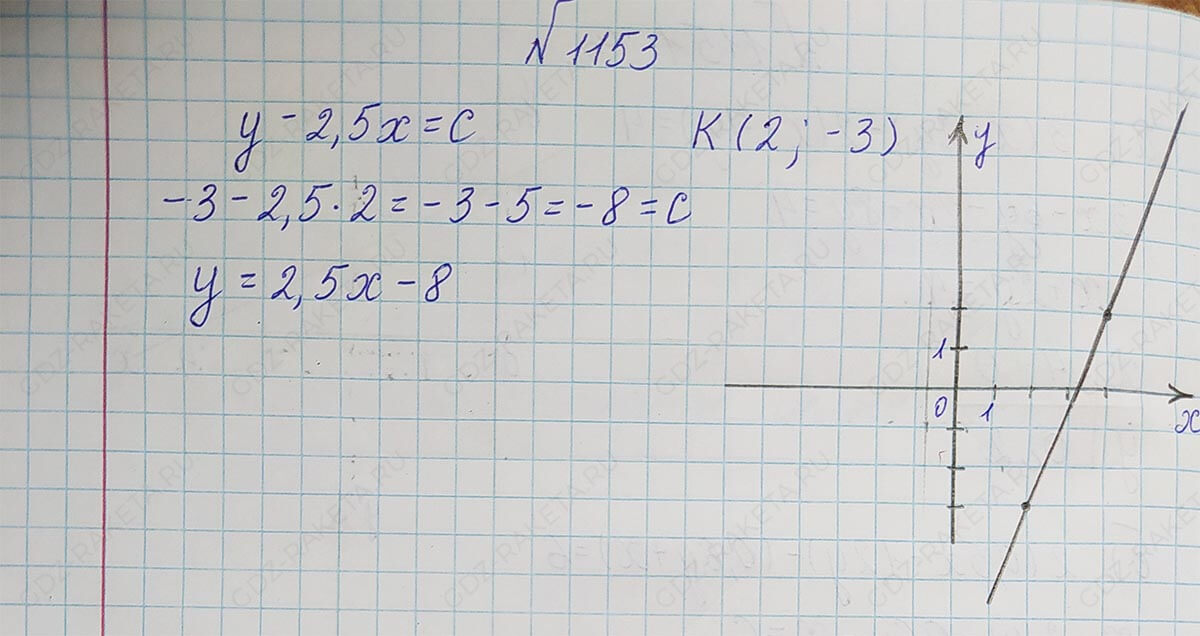 №1153
y - 2,5x = c
K (2; -3)
-3 - 2,5 · 2 = -3 - 5 = -8 = c
y = 2,5x - 8
y
1
0 1
x
GDZ-RAKETA.RU